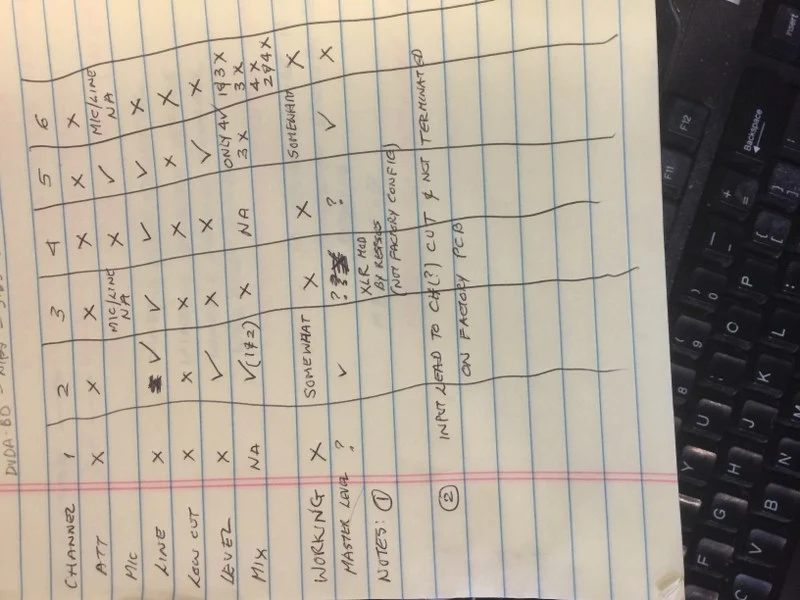 DVDA-BD
CHANNEL 1 2 3 4 5 6
ATT X X X X X X
MIC MIC/LINE NA X ✓ MIC/LINE NA
LINE X ✓ ✓ ✓ ✓ X
LOW CUT X X X X X X
LEVEL X ✓ X X ✓ X
MIX NA ✓(1&2) X NA ONLY 4✓ 1&3X
3X 3X
4X
2&4X
WORKING X SOMEWHAT X X SOMEWHAT X
MASTER LEVEL ? ✓ ? ? ✓ X
NOTES: ① XLR MOD
BY
(NOT FACTORY CONFIG)
② INPUT LEAD TO CH(?) CUT & NOT TERMINATED
ON FACTORY PCB
F11 F12
Backspace
Insert
Y U I O P
F G H J K L
C V B N